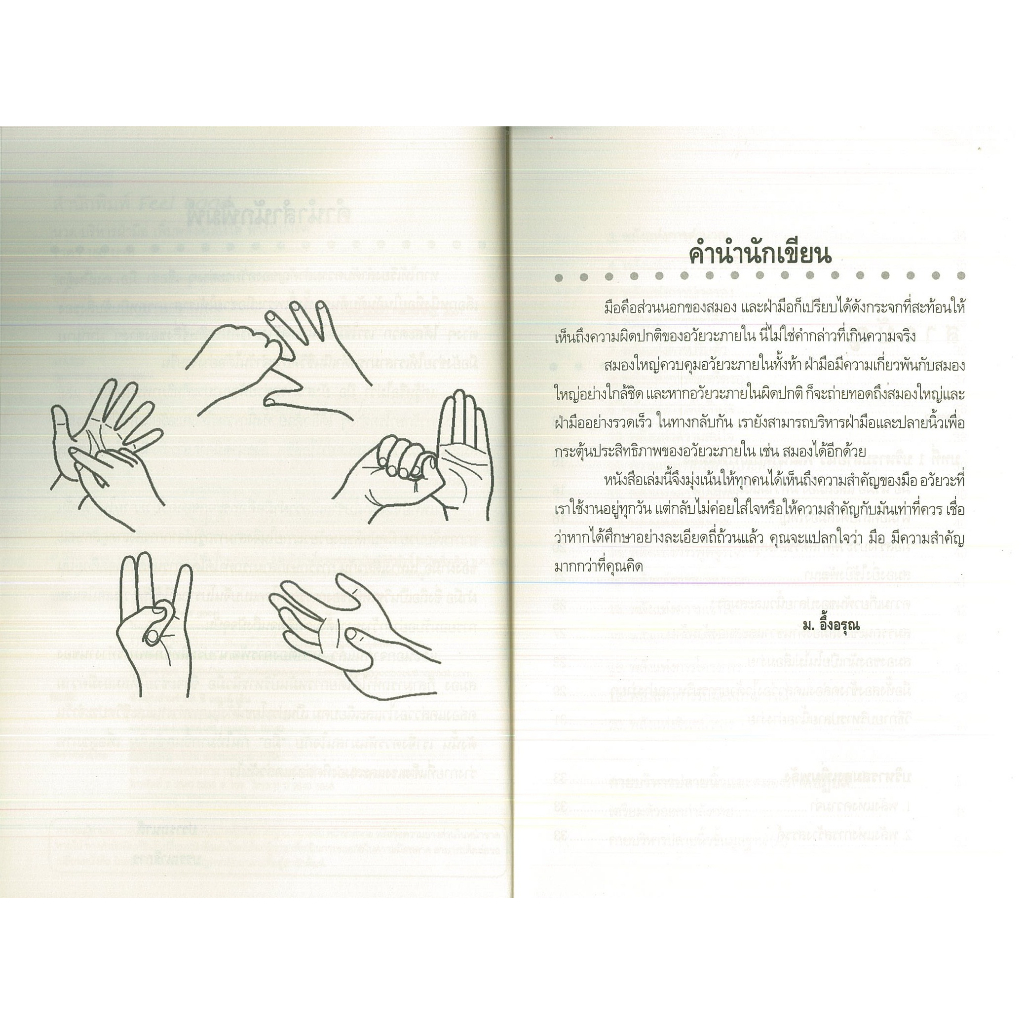 คำนำนักเขียน
มือคือส่วนนอกของสมอง และฝ่ามือก็เปรียบได้ดังกระจกที่สะท้อนให้
เห็นถึงความผิดปกติของอวัยวะภายใน นี่ไม่ใช่คำกล่าวที่เกินความจริง
สมองใหญ่ควบคุมอวัยวะภายในทั้งห้า ฝ่ามือมีความเกี่ยวพันกับสมอง
ใหญ่อย่างใกล้ชิด และหากอวัยวะภายในผิดปกติ ก็จะถ่ายทอดถึงสมองใหญ่และ
ฝ่ามืออย่างรวดเร็ว ในทางกลับกัน เรายังสามารถบริหารฝ่ามือและปลายนิ้วเพื่อ
กระตุ้นประสิทธิภาพของอวัยวะภายใน เช่น สมองได้อีกด้วย
หนังสือเล่มนี้จึงมุ่งเน้นให้ทุกคนได้เห็นถึงความสำคัญของมือ อวัยวะที่
เราใช้งานอยู่ทุกวัน แต่กลับไม่ค่อยใส่ใจหรือให้ความสำคัญกับมันเท่าที่ควร เชื่อ
ว่าหากได้ศึกษาอย่างละเอียดถี่ถ้วนแล้ว คุณจะแปลกใจว่า มือ มีความสำคัญ
มากกว่าที่คุณคิด
ม. อึ้งอรุณ